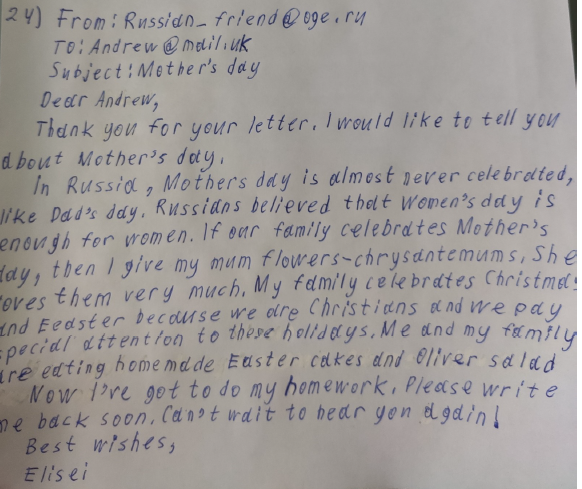 24) From: Russian_friend@oge.ru
To: Andrew@mail.uk
Subject: Mother's day
Dear Andrew,
Thank you for your letter. I would like to tell you
about Mother's day.
In Russia, Mothers day is almost never celebrated,
like Dad's day. Russians believed that Women's day is
enough for women. If our family celebrates Mother's
day, then I give my mum flowers-chrysantemums. She
loves them very much. My family celebrates Christmas
and Eedster because we are Christians and we pay
special attention to these holidays. Me and my family
are eating homemade Easter cakes and Oliver salad
Now I've got to do my homework. Please write
me back soon. Can't wait to hear you again!
Best wishes,
Elisei